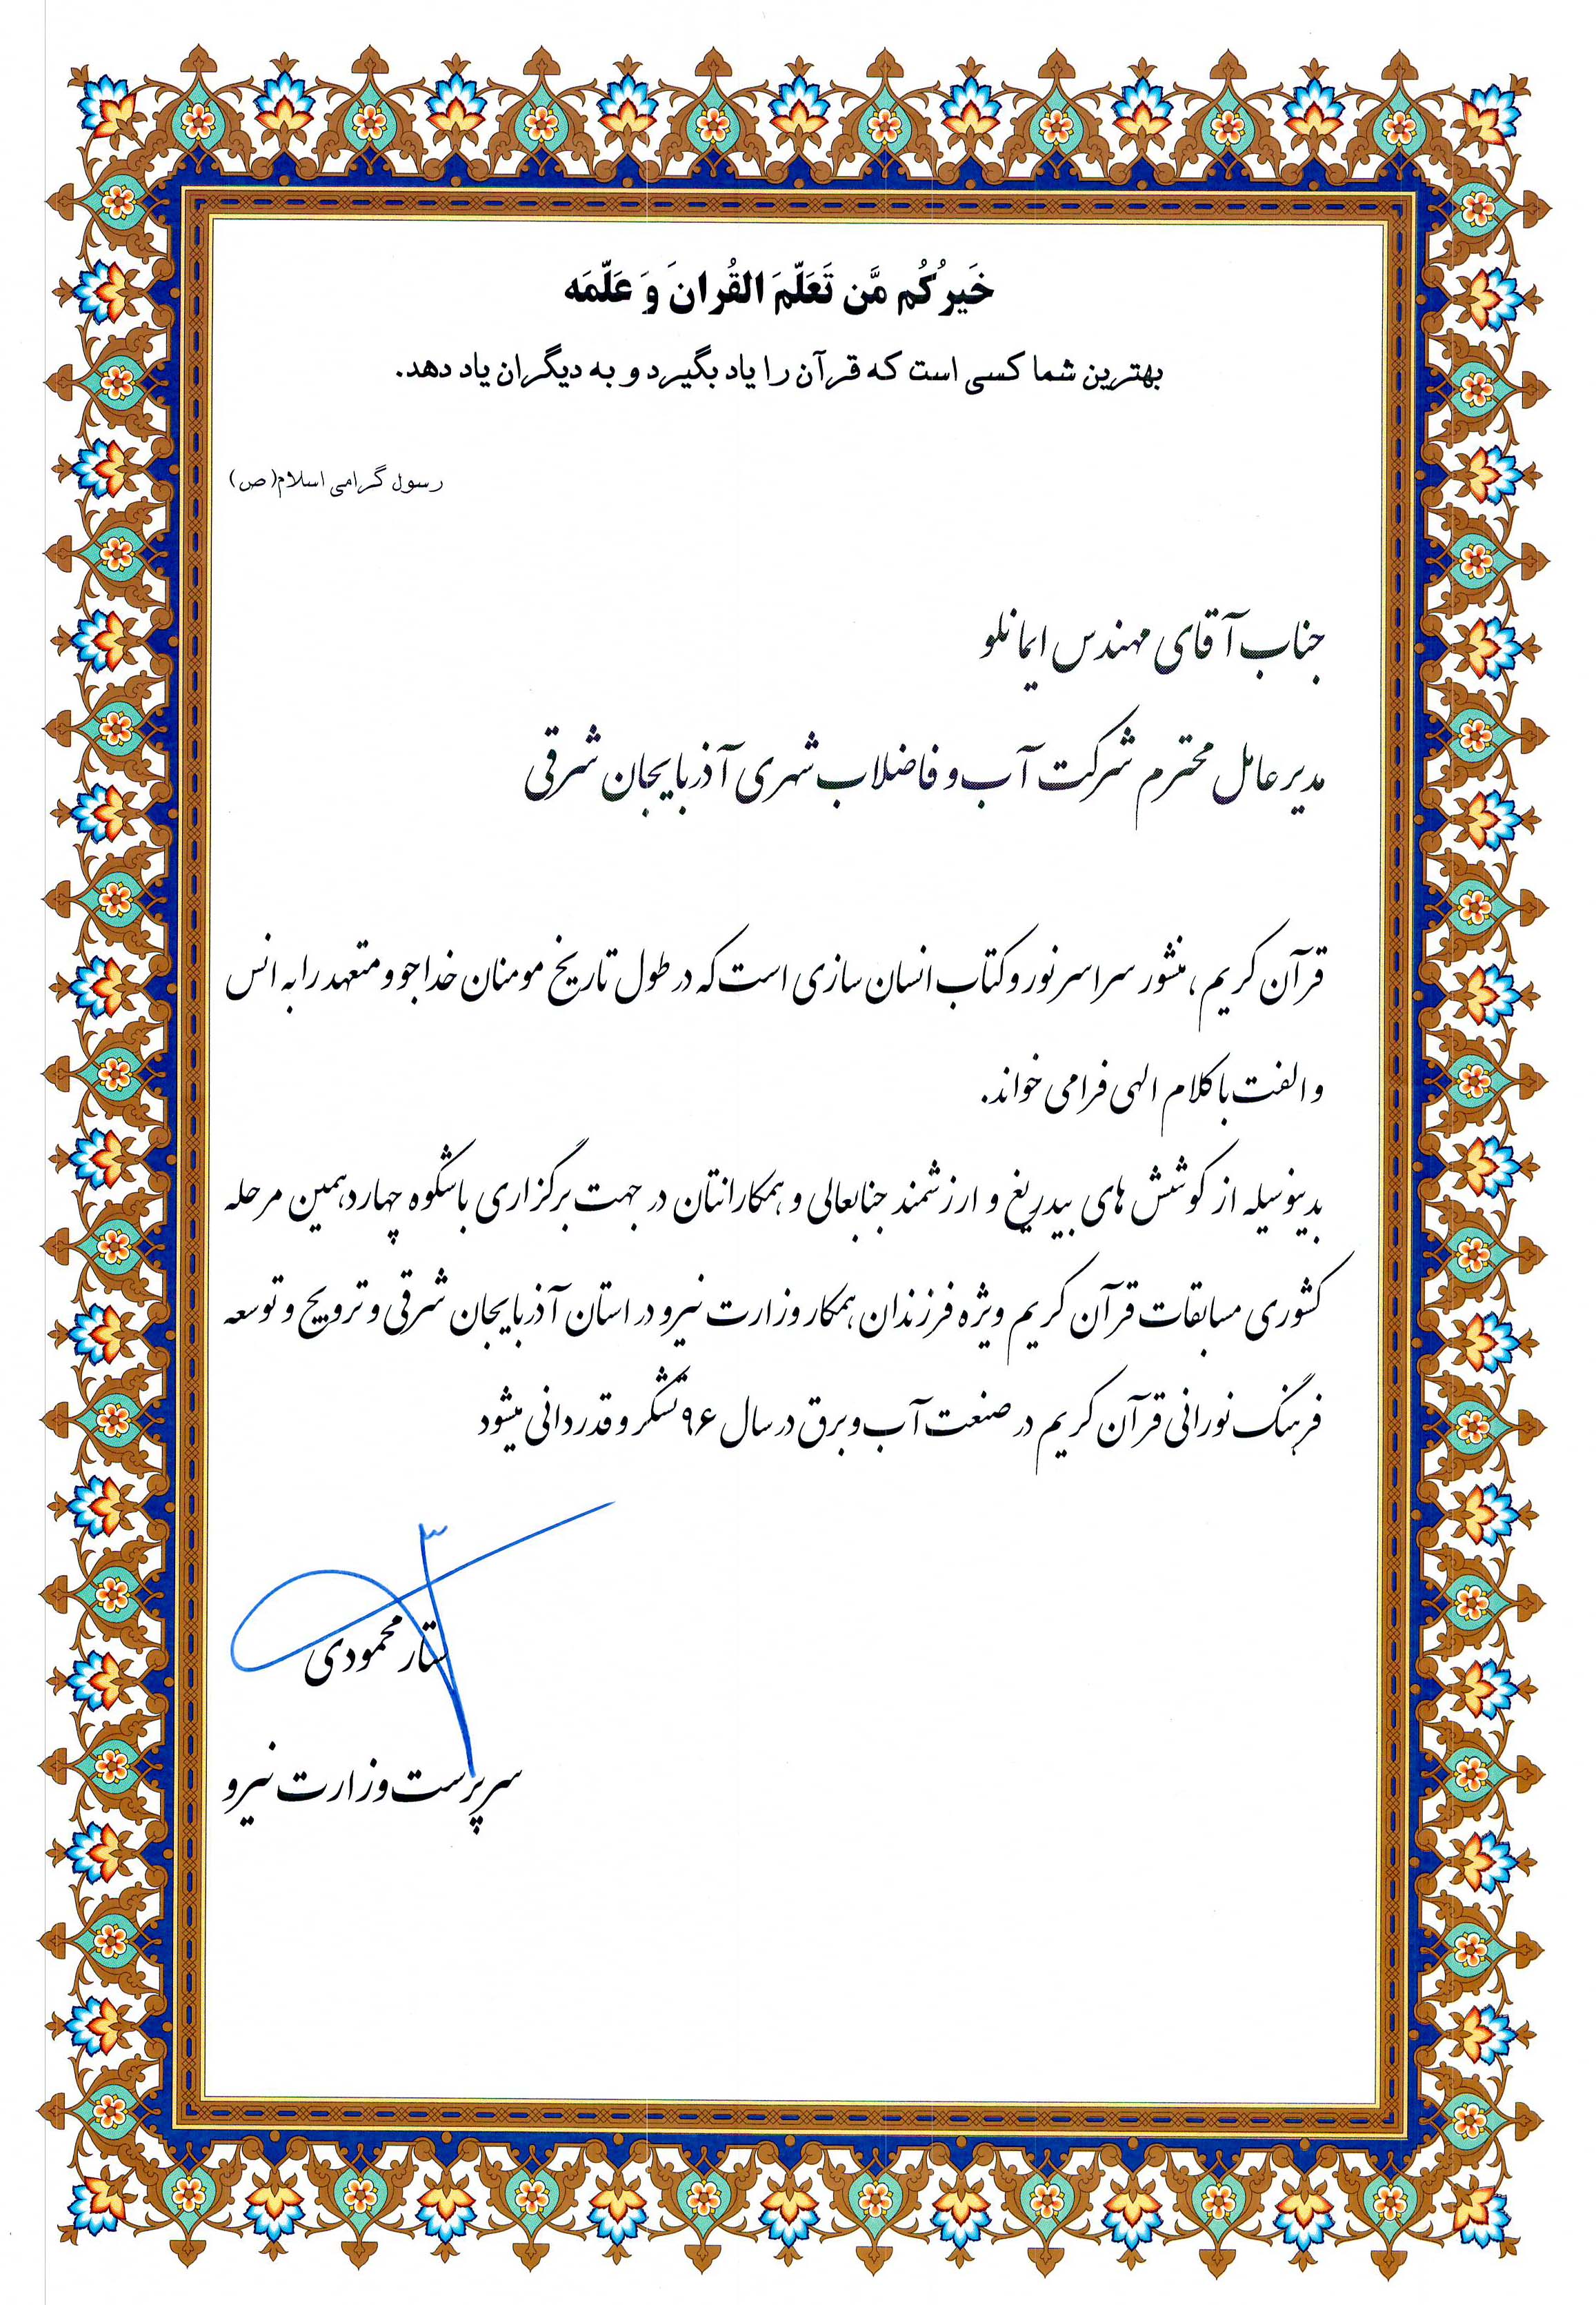 خَیرُکُم مَّن تَعَلّمَ القُرانَ وَ عَلّمَه
بهترین شما کسی است که قرآن را یاد بگیرد و به دیگران یاد دهد.
رسول گرامی اسلام(ص)
جناب آقای مهندس ایمانلو
مدیر عامل محترم شرکت آب و فاضلاب شهری آذربایجان شرقی
قرآن کریم، منشور سراسر نور و کتاب انسان سازی است که در طول تاریخ مومنان خداجو و متعهد را به انس
و الفت با کلام الهی فرا می خواند.
بدینوسیله از کوشش های بیدریغ و ارزشمند جنابعالی و همکارانتان در جهت برگزاری باشکوه چهاردهمین مرحله
کشوری مسابقات قرآن کریم ویژه فرزندان همکار وزارت نیرو در استان آذربایجان شرقی و ترویج و توسعه
فرهنگ نورانی قرآن کریم در صنعت آب و برق در سال ۹۶ تشکر و قدردانی میشود
ستار محمودی
سرپرست وزارت نیرو